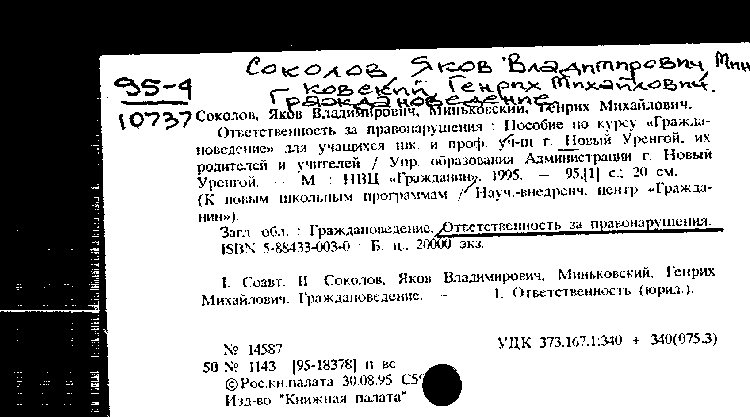 Соколов Яков Владимирович, Мин
95-4
ковский Генрих Михайлович.
Граждановедение
10737
Соколов, Яков Владимирович, Миньковский, Генрих Михайлович.
Ответственность за правонарушения : Пособие по курсу «Гражда-
новедение» для учащихся шк. и проф. уч-щ г. Новый Уренгой, их
родителей и учителей / Упр. образования Администрации г. Новый
Уренгой. — М : НВЦ «Гражданин», 1995. — 95,[1] с.; 20 см.
(К новым школьным программам / Науч.-внедренч. центр «Гражда-
нин»).
Загл обл. : Граждановедение. Ответственность за правонарушения.
ISBN 5-88433-003-0 : Б. ц., 20000 экз.
I. Соавт. II Соколов, Яков Владимирович, Миньковский, Генрих
Михайлович. Граждановедение. — 1. Ответственность (юрид.).
№ 14587
УДК 373.167.1:340 + 340(075.3)
50 № 1143 [95-18378] п вс
© Рос.кн.палата 30.08.95
Изд-во "Книжная палата"